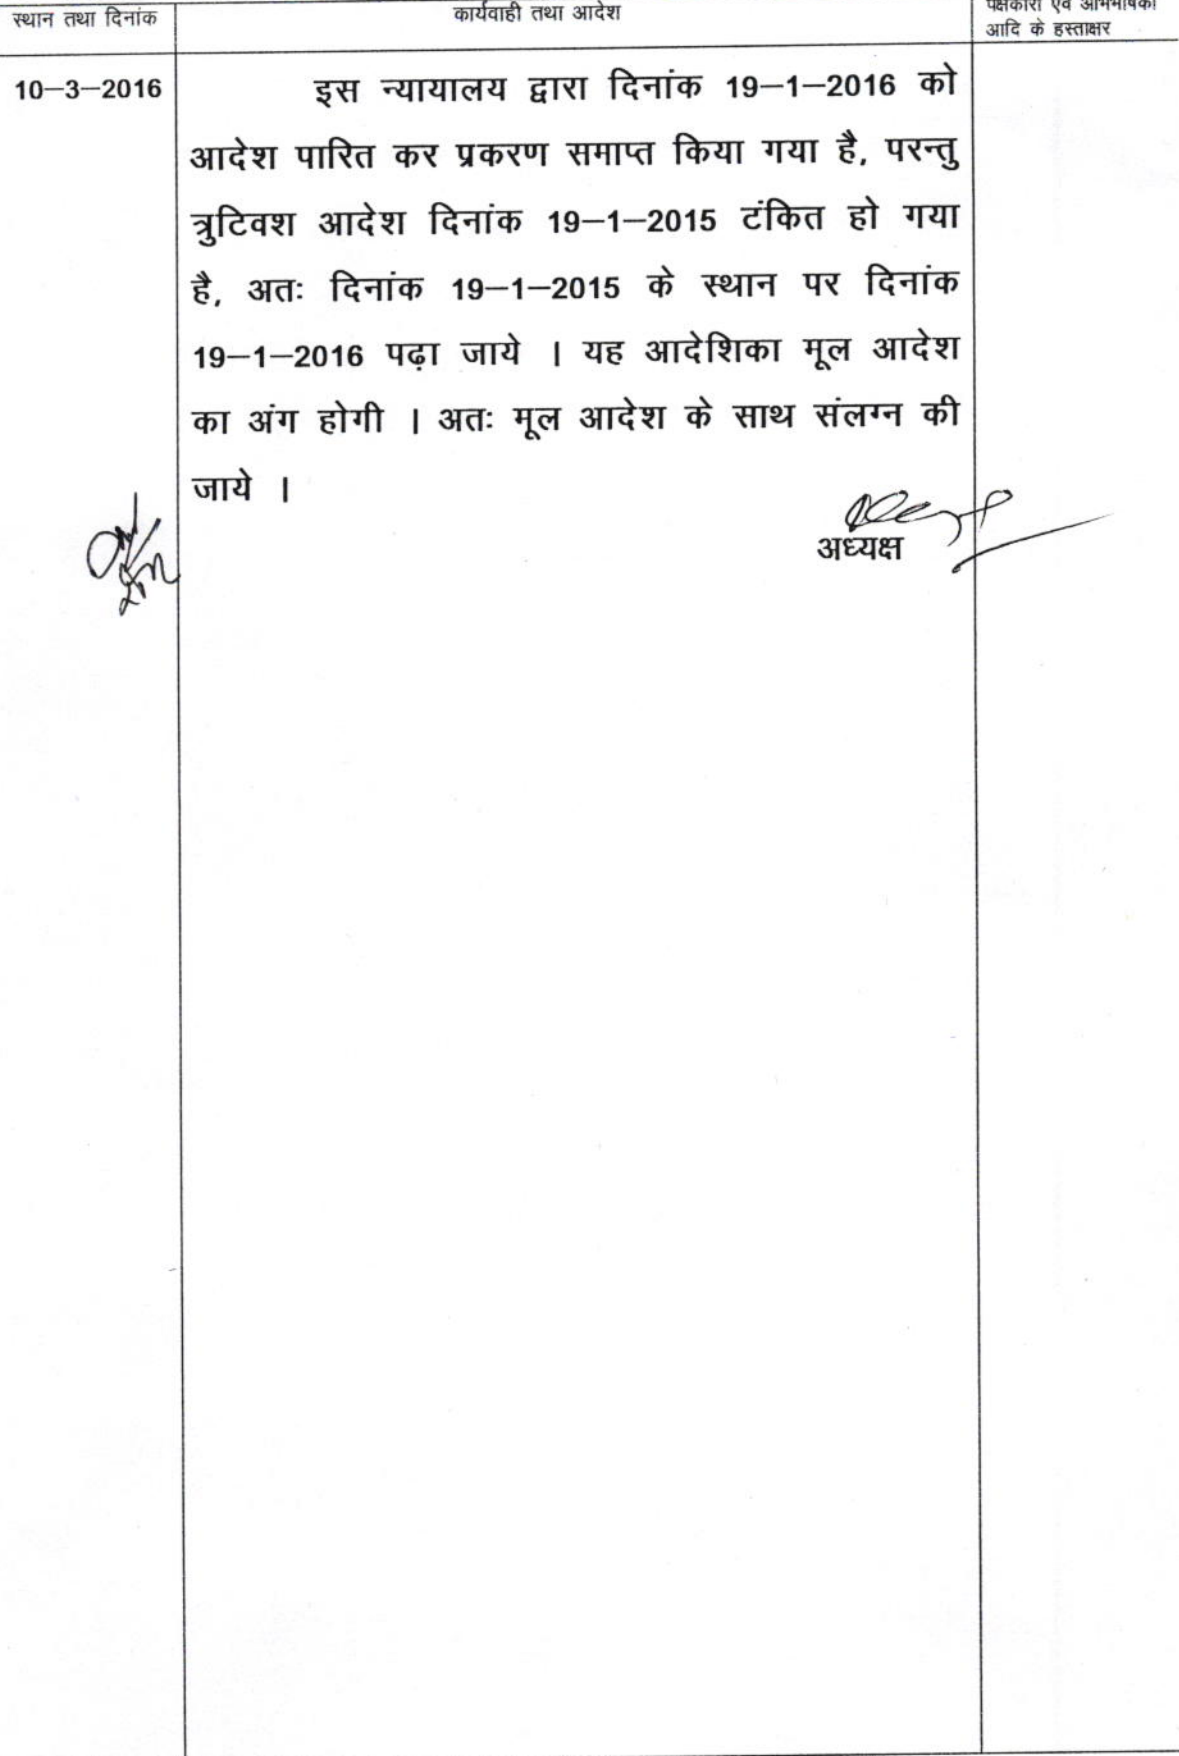 स्थान तथा दिनांक
कार्यवाही तथा आदेश
पक्षकारों एवं अभिभाषकों
आदि के हस्ताक्षर
10–3–2016
इस न्यायालय द्वारा दिनांक 19–1–2016 को
आदेश पारित कर प्रकरण समाप्त किया गया है, परन्तु
त्रुटिवश आदेश दिनांक 19–1–2015 टंकित हो गया
है, अतः दिनांक 19–1–2015 के स्थान पर दिनांक
19–1–2016 पढ़ा जाये । यह आदेशिका मूल आदेश
का अंग होगी । अतः मूल आदेश के साथ संलग्न की
जाये ।
अध्यक्ष